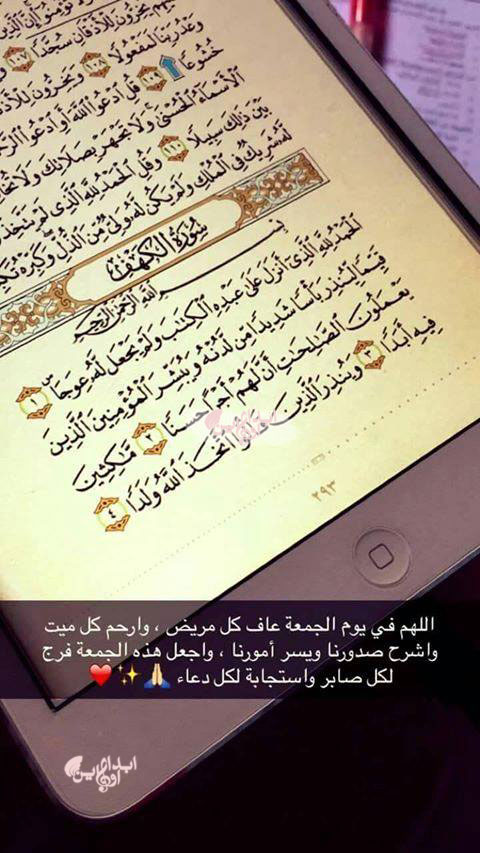 وَعْدُ رَبِّنَا لَمَفْعُولًا ١٠٨ وَيَخِرُّونَ لِلْأَذْقَانِ
خُشُوعًا ١٠٩ قُلِ ادْعُوا اللَّهَ أَوِ ادْعُوا
الْأَسْمَاءُ الْحُسْنَىٰ وَلَا تَجْهَرْ بِصَلَاتِكَ وَلَا
بَيْنَ ذَٰلِكَ سَبِيلًا ١١٠ وَقُلِ الْحَمْدُ لِلَّهِ الَّذِي لَمْ يَتَّخِذْ
لَهُ شَرِيكٌ فِي الْمُلْكِ وَلَمْ يَكُن لَّهُ وَلِيٌّ مِّنَ الذُّلِّ وَكَبِّرْهُ
سُورَةُ الْكَهْفِ
بِسْمِ اللَّهِ الرَّحْمَٰنِ الرَّحِيمِ
الْحَمْدُ لِلَّهِ الَّذِي أَنزَلَ عَلَىٰ عَبْدِهِ الْكِتَابَ وَلَمْ يَجْعَل لَّهُ عِوَجًا ۜ ١
قَيِّمًا لِّيُنذِرَ بَأْسًا شَدِيدًا مِّن لَّدُنْهُ وَيُبَشِّرَ الْمُؤْمِنِينَ الَّذِينَ
يَعْمَلُونَ الصَّالِحَاتِ أَنَّ لَهُمْ أَجْرًا حَسَنًا ٢ مَّاكِثِينَ
فِيهِ أَبَدًا ٣ وَيُنذِرَ الَّذِينَ قَالُوا اتَّخَذَ اللَّهُ وَلَدًا ٤
٢٩٣
اللهم في يوم الجمعة عاف كل مريض ، وارحم كل ميت
واشرح صدورنا ويسر أمورنا ، واجعل هذه الجمعة فرج
لكل صابر واستجابة لكل دعاء 🙏✨❤️